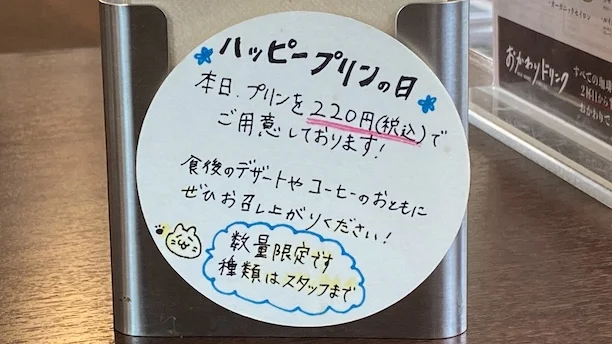 ハッピープリンの日
本日、プリンを220円(税込)で
ご用意しております!
食後のデザートや コーヒーのおともに
ぜひお召し上がりください!
数量限定です
種類はスタッフまで
おかわりドリンク
すべての
2杯目から
おかわりで